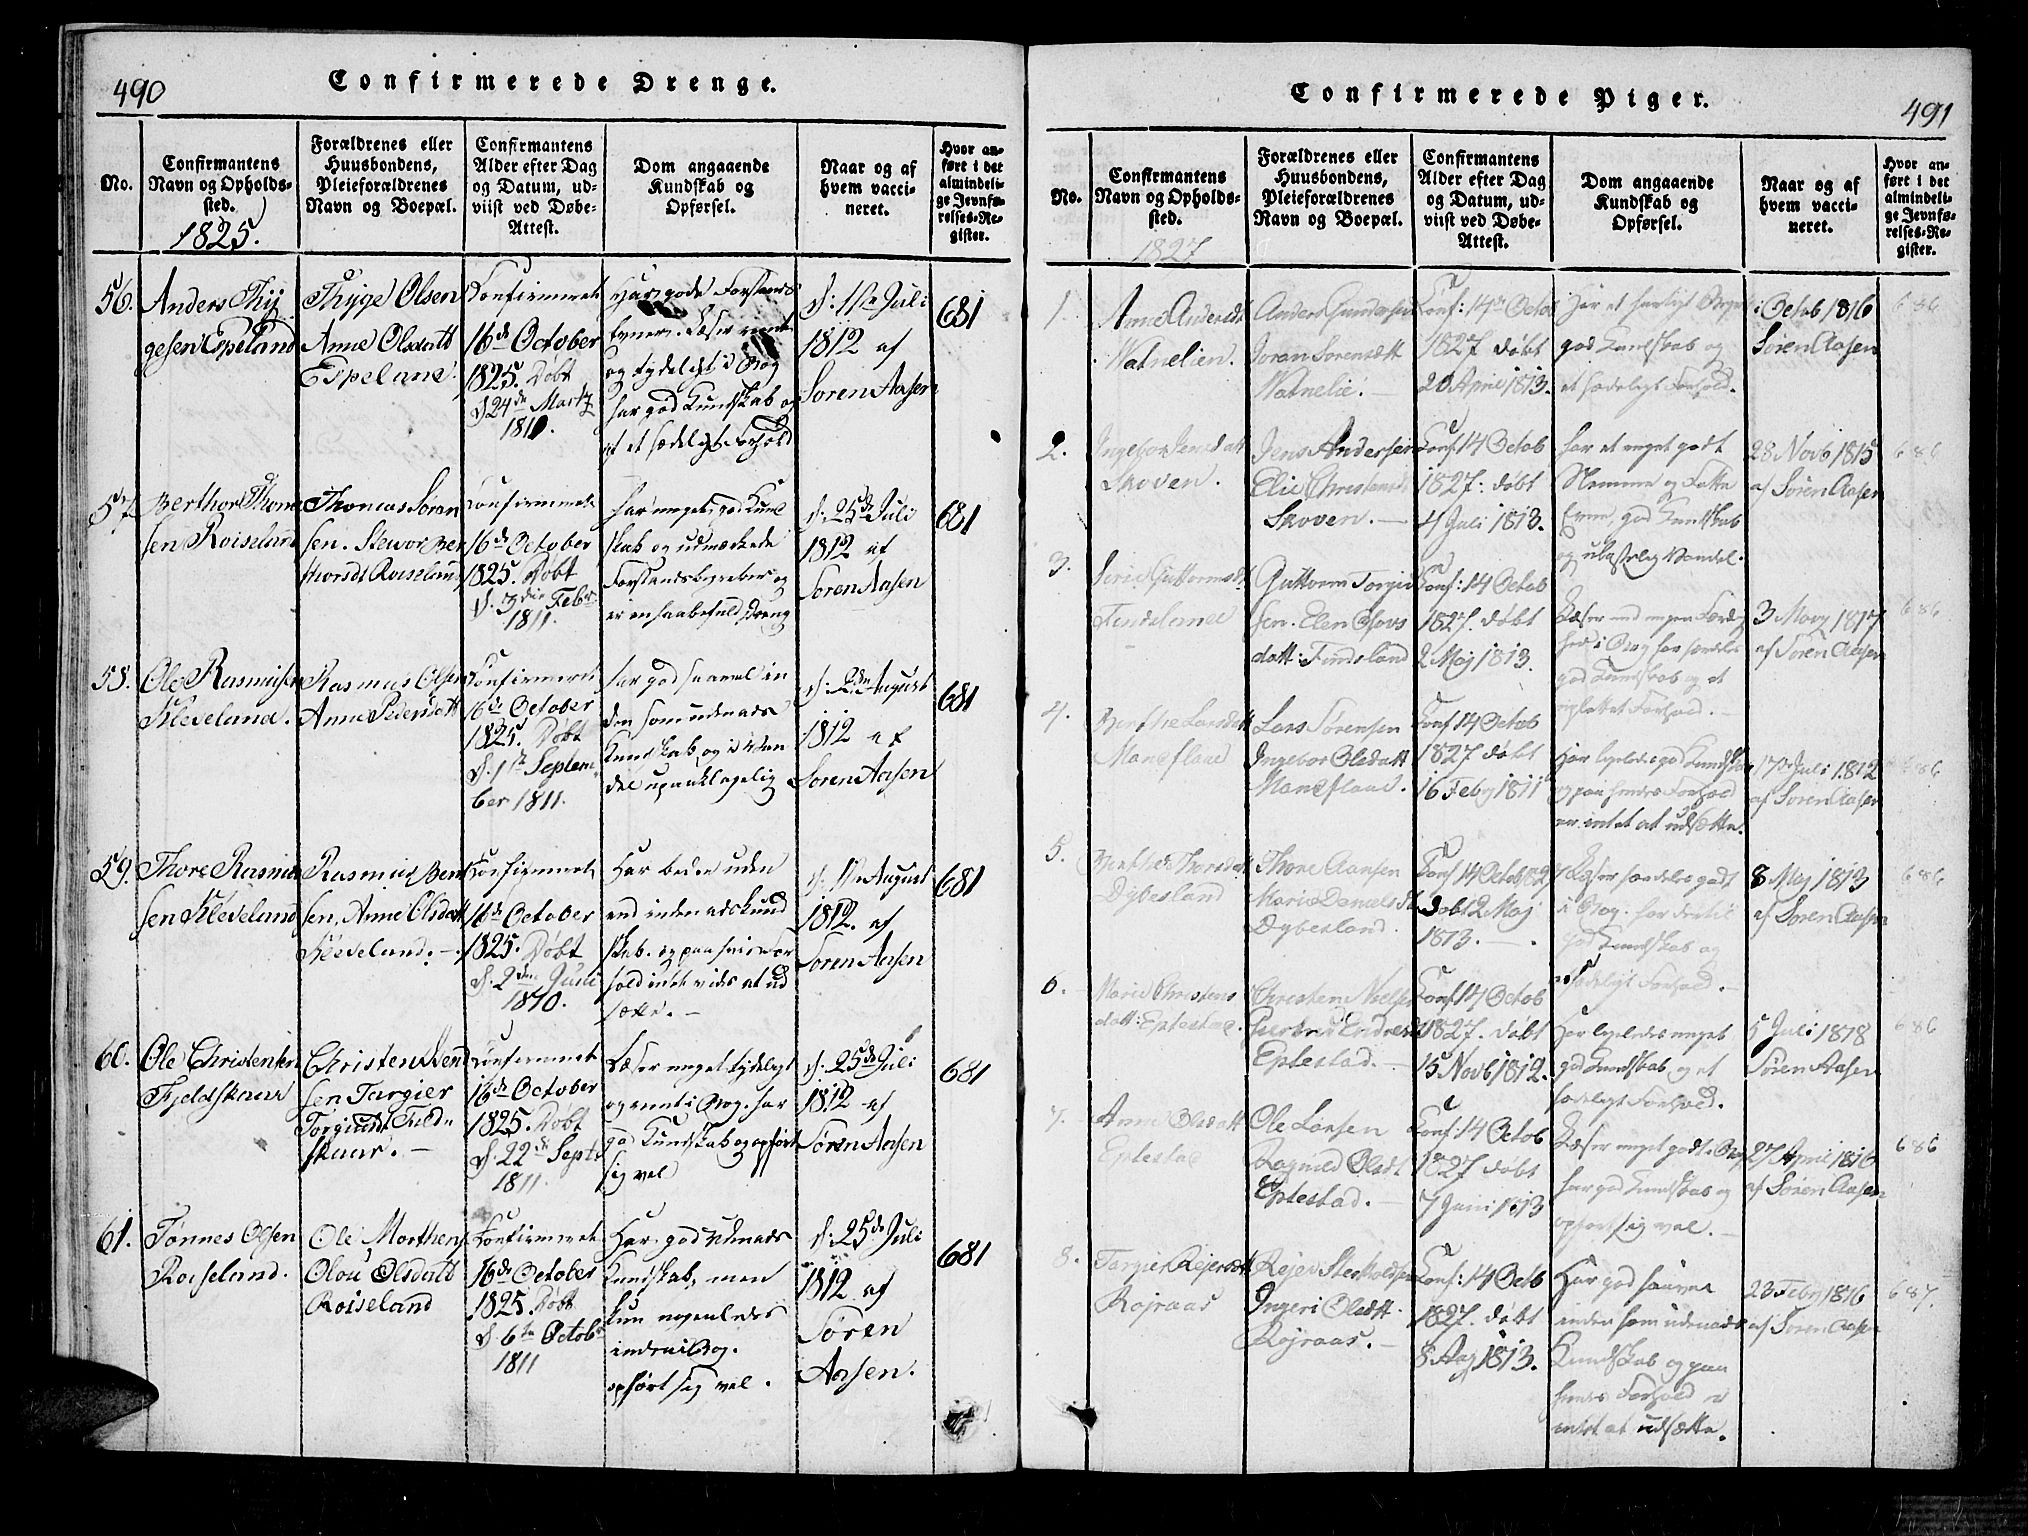 490
Confirmerede Drenge.
No.
Confirmantens
Navn og Opholds-
sted.
1825.
Forældrenes eller
Huusbondens,
Pleieforældrenes
Navn og Boepæl.
Confirmantens
Alder efter Dag
og Datum, ud-
viist ved Døbe-
Attest.
Dom angaaende
Kundskab og
Opførsel.
Naar og af
hvem vacci-
neret.
Hvor an-
ført i det
almindeli-
ge Jevnfø-
relses-Re-
gister.
56.
Anders Thÿ
gesen Epeland
Thÿge Olsen
Anne Olsdatt
Espeland.
Konfirmeret
16de October
1825. Døbt
d. 24de Martz
1810.
Har gode Forstands
Evner. Læser rent
og tydeligt i Bog
har god Kundskab og
et sædeligt Forhold
d: 11te Juli
1812 af
Søren Aasen
681
57.
Berthor Thom
sen Roiseland
Thomas Søran
sen. Stevor Ber
thorsdt Roiseland
Confirmeret
16de October
1825. Døbt
d. 3die Febr.
1811.
har meget god Kund
skab og udmærkede
Forstandsbegreber og
er en haabefuld Dreng
d: 25de Juli
1812 af
Soren Aasen
681
58.
Ole Rasmusen
Kleveland.
Rasmus Olsen
Anne Pedersdatt
Confirmeret
16de October
1825. Døbt
d. 1ste Septem-
ber 1811.
har god saavel in
den som udenads
Kundskab, og i Van
del upaaklagelig
d: 2den August
1812 af
Soren Aasen
681
59.
Thore Rasmu
sen Kleveland
Rasmus Ben
sen, Anne Olsdatt
Kleveland. -
Confirmeret
16de October
1825. Døbt
d. 2den Juli
1810.
Har bedre uden
end indenadskund
skab. og paa hans For
hold intet vides at ud
sætte. -
d: 11te August
1812. af
Soren Aasen
681
60.
Ole Christensen
Fjeldskaar
Christen Svend
sen Targier
Torgiusdt Field-
skaar. -
Confirmeret
16de October
1825. Døbt
d. 22de Septb
1811.
Læser meget tydeligt
og rent i Bog. har
god Kundskab og opført
sig vel
d. 25de Juli
1812 af
Søren Aasen
681
61.
Tønnes Olsen
Roiseland.
Ole Morthens
Olou Olsdatt
Roiseland
Confirmeret
16de October
1825. Døbt
d 6te Octobr
1811
Har god Udenads
Kundskab, men
kun nogenledes
inden i Bog.
opført sig vel.
d: 25de Juli
1812 af
Søren
Aasen.
681
491
Confirmerede Piger.
No.
Confirmantens
Navn og Opholds-
sted.
1827
Forældrenes eller
Huusbondens,
Pleieforældrenes
Navn og Boepæl.
Confirmantens
Alder efter Dag
og Datum, ud-
viist ved Døbe-
Attest.
Dom angaaende
Kundskab og
Opførsel.
Naar og af
hvem vacci-
neret.
Hvor an-
ført i det
almindeli-
ge Jevnfø-
relses-Re-
gister.
1.
Anne Andersdt
Natnelien.
Anders Gundersen
Joran Sorensdtt
Natnelie. -
Conf: 14de Octob
1827 døbt
20 April 1813.
Har et herligt Begreb
god Kundskab og
et sædeligt Forhold.
i Octob 1816
Søren Aasen
686
2.
Ingebor Jensdatt
Skoven.
Jens Andersen
Elie Christensdt
Skoven. -
Conf 14 Octob
1827: døbt
4 Juli 1813.
har et meget godt
Nemme og Fatte
Evne, god Kundskab
og ulastelig Vandel.
28 Novb 1815
af Søren Aasen
686
3.
Serie Guttormsdt
Findsland
Guttorm Torgie
sen. Elen Olovs
datt: Findsland
Conf: 14 Octob
1827. døbt
2 Maj 1813.
Læser med megen Færdig
hed i Bog har særdeles
god Kundskab og et
uplettet Forhold. -
3 May 1817
af Søren Aasen
686
4.
Berthe Larsdatt
Maneflaae
Lars Sørensen
Ingebor Olsdatt
Maneflaae.
Conf 14 Octob
1827 døbt
16 Feby 1811
Har ligeledes god Kundskab
og paa hendes Forhold
er intet at udsætte.
17de Juli 1812
af Søren Aasen
686
5.
Berthe Thorsdatt
Dybesland
Thore Aansen
Marie Danielsdt
Dybesland.
Conf 14 Octob 1827
døbt 2 Maj
1813. -
Læser særdeles godt
i Bog. har dertil
god Kundskab og
sædeligt Forhold. -
8 Maj 1813
af Søren Aasen
686
6.
Marie Christens
datt: Eptestad.
Christen Nielsen
Gertrud Endresdt
Eptestad. -
Conf 14 Octob
1827. døbt
15 Novb 1812.
Har ligeledes meget
god Kundskab og et
sædeligt Forhold.
5 Juli 1818
Søren Aasen
686
7.
Anne Olsdatt
Eptestad
Ole Larsen
Ragnild Olsdt
Eptestad. -
Conf: 14 Octob
1827 døbt
7 Juni 1813
Læser meget godt i Bog
har god Kundskab og
opført sig vel. -
27 April 1816
af Søren Aasen
686
8.
Targier Rejersdatt
Rojraas
Rejer Sterkoldsen
Ingeri Olsdtt.
Rojraas. -
Conf: 14 Octb
1827. døbt
8 Aug 1813.
Har god saavel
inden som udenads
Kundskab og paa
hendes Forhold er
intet at udsætte.
23 Feby 1816
af Søren Aasen
687.